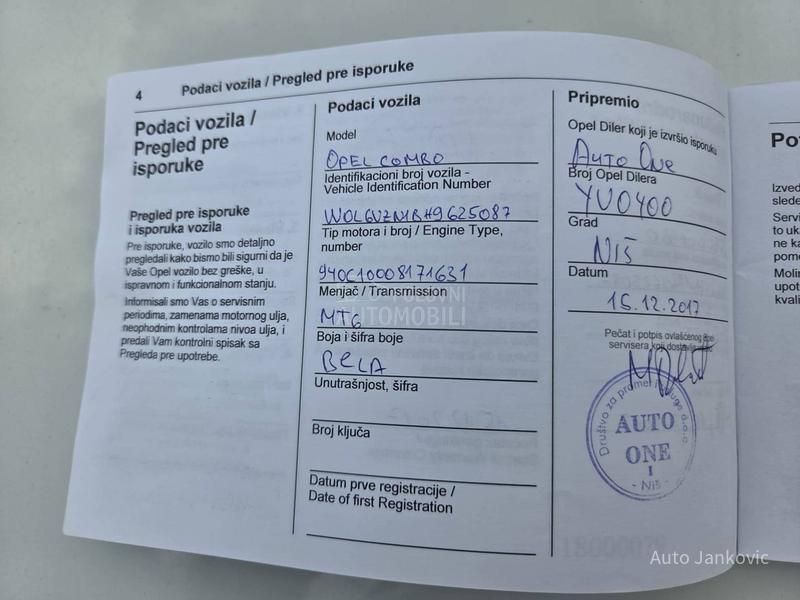 4
Podaci vozila / Pregled pre isporuke
Podaci vozila /
Pregled pre
isporuke
Pregled pre isporuke
i isporuka vozila
Pre isporuke, vozilo smo detaljno
pregledali kako bismo bili sigurni da je
Vaše Opel vozilo bez greške, u
ispravnom i funkcionalnom stanju.
Informisali smo Vas o servisnim
periodima, zamenama motornog ulja,
neophodnim kontrolama nivoa ulja, i
predali Vam kontrolni spisak sa
Pregleda pre upotrebe.
Podaci vozila
Model
OPEL COMBO
Identifikacioni broj vozila -
Vehicle Identification Number
W0L6VZN1BH9625087
Tip motora i broj / Engine Type,
number
940C10008171631
Menjač / Transmission
MT6
Boja i šifra boje
BELA
Unutrašnjost, šifra
Broj ključa
Datum prve registracije /
Date of first Registration
Pripremio
Opel Diler koji je izvršio isporuku
AUTO ONE
Broj Opel Dilera
YU0400
Grad
NIŠ
Datum
15.12.2017
Pečat i potpis ovlašćenog Opel
servisera koji
Društvo za promet i usluge d.o.o.
AUTO
ONE
I
- Niš -
Izved
slede
Servi
to uk
ne ka
pome
Molim
upot
kvali
AUTOMOBILI
Auto Jankovic